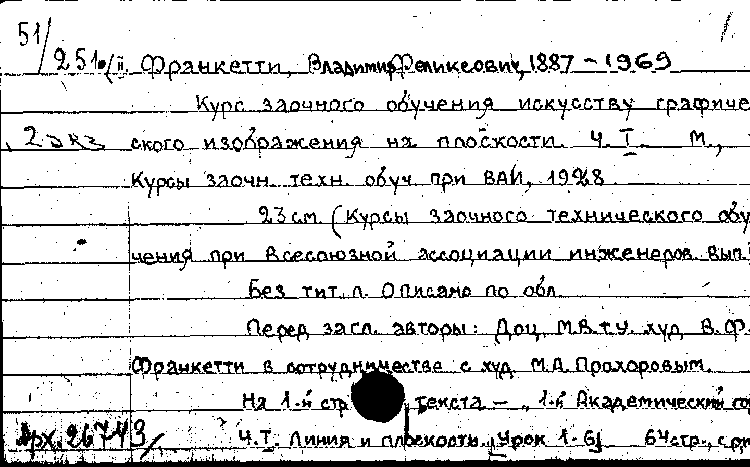 51/
251/ii. Франкетти, Владимир Феликсович, 1887-1969
Курс заочного обучения искусству графиче
2 экз ского изображения на плоскости. Ч. I. М.,
Курсы заочн. техн. обуч. при ВАИ, 1928
23 см. (Курсы заочного технического обу
чения при Всесоюзной ассоциации инженеров. Вып.
Без тит. л. Описано по обл.
Перед загл. авторы: Доц. М.В.т.У. худ. В.Ф.
Франкетти в сотрудничестве с худ. М.А. Прохоровым.
На 1-й стр. текста - „1-й Академический го
Арх. 26743/ Ч.I. Линия и плоскость. (Урок 1-6) 64 стр., с